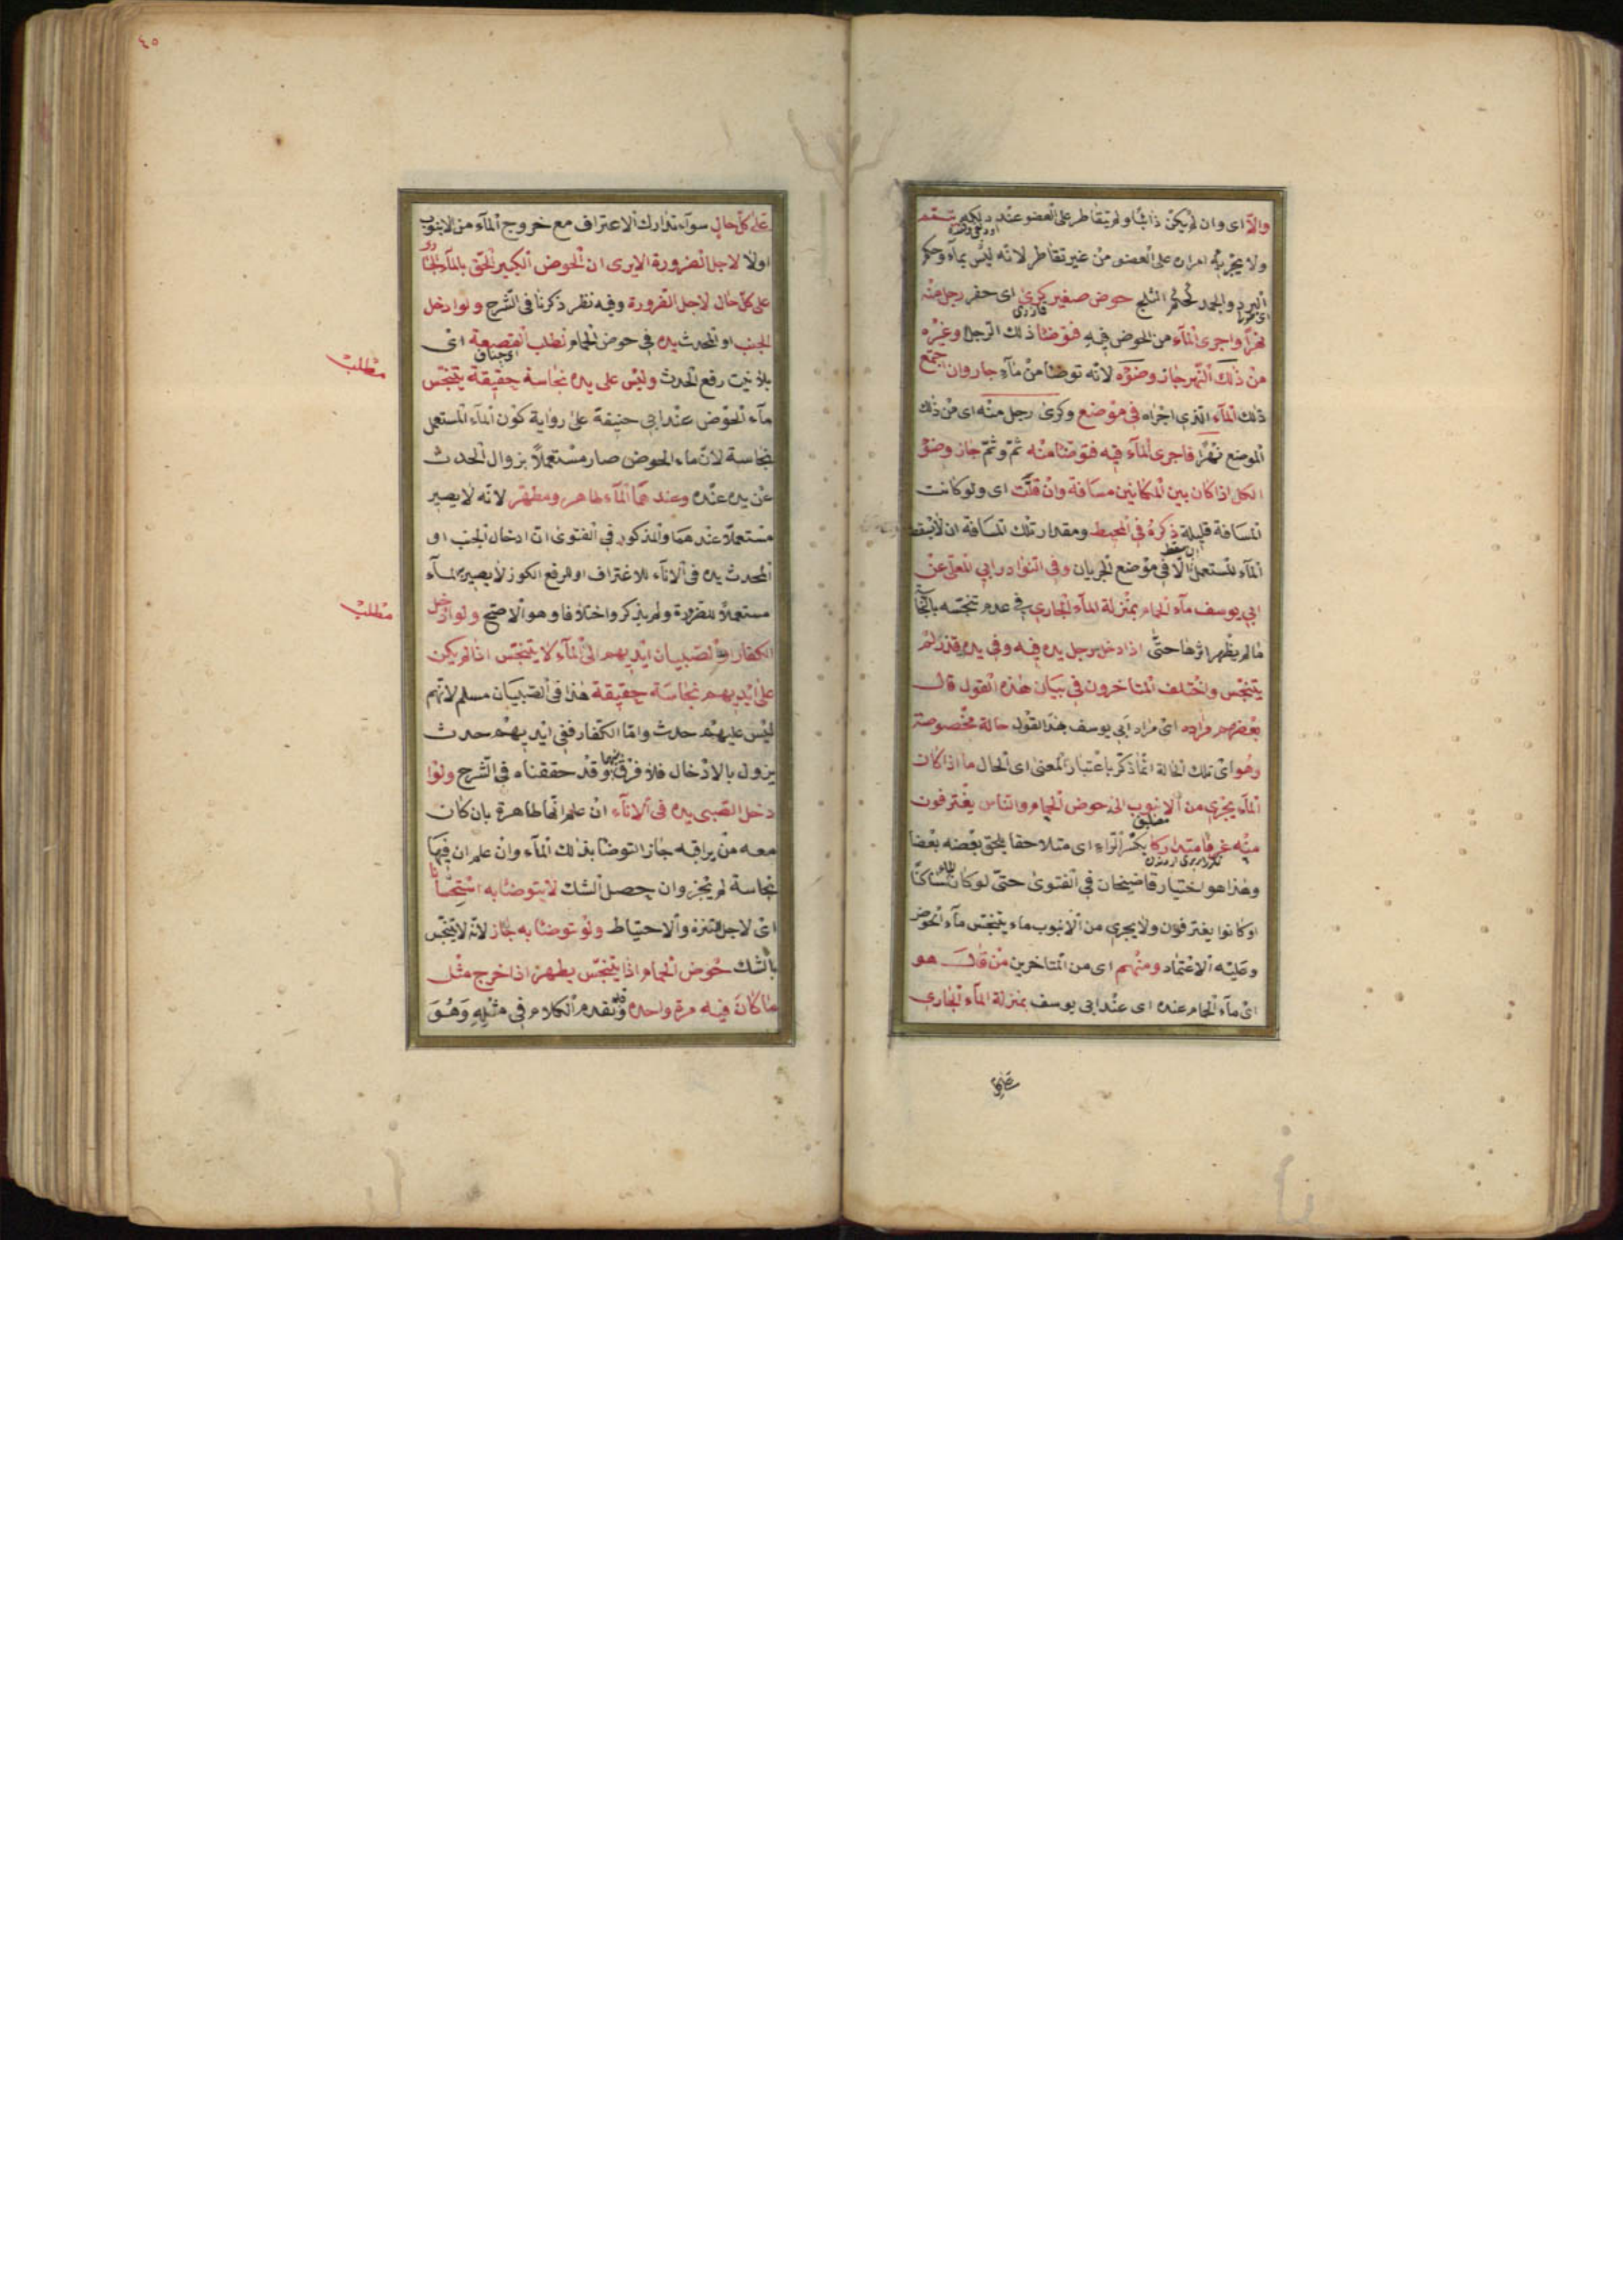 والّا اى وان لم يكن ذائبا ولم يتقاطر على العضو عند دلكه تيمم
ولا يجزيه امراره على العضو من غير تقاطر لانه ليس بماء وحكم
البرد والجمد كحكم الثلج حوض صغير كرى اى حفر رجل منه
نهرا واجرى الماء من الحوض فيه فتوضأ ذلك الرجل وغيره
من ذلك النهر جاز وضوؤه لانه توضأ من ماء جار وان اجتمع
ذلك الماء الذى اجراه فى موضع وكرى رجل منه اى من ذلك
الموضع نهرا فاجرى الماء فيه فتوضأ منه ثم وثم جاز وضوء
الكل اذا كان بين المكانين مسافة وان قلّت اى ولو كانت
المسافة قليلة ذكره فى المحيط ومقدار تلك المسافة ان لا يسقط
الماء المستعمل الّا فى موضع الجريان وفى النوادر ابي المعلى عن
ابي يوسف ماء الحمام بمنزلة الماء الجارى فى عدم تنجسه بالنجاسة
ما لم يظهر اثرها حتى اذا دخل رجل يده فيه وفى يده قذر لم
يتنجس واختلف المتاخرون فى بيان هذه القول قال
بعضهم مراده اى مراد ابي يوسف بهذا القول حالة مخصوصة
وهو اى تلك الحالة انما ذكر باعتبار المعنى اى الحال ما اذا كان
الماء يجرى من الانبوب الى حوض الحمام والناس يغترفون
منه غرفا متداركا بكسر الراء اى متلاحقا يلحق بعضه بعضا
وهذا هو اختيار قاضيخان فى الفتوى حتى لو كان الماء ساكنا
او كانوا يغترفون ولا يجرى من الانبوب ماء يتنجس ماء الحوض
وعليه الاعتماد ومنهم اى من المتاخرين من قال هو
اى ماء الحمام عنده اى عند ابي يوسف بمنزلة الماء الجارى
على كل حال
٤٥
على كل حال سواء تدارك الاغتراف مع خروج الماء من الانبوب
اولا لاجل الضرورة الا يرى ان الحوض الكبير الحق بالماء الجارى
على كل حال لاجل الضرورة وفيه نظر ذكرنا فى الشرح ولو ادخل
الجنب او المحدث يده فى حوض الحمام لطلب القصعة اى
بلا نيت رفع الحدث وليس على يده نجاسة حقيقة يتنجس
مطلب
ماء الحوض عند ابي حنيفة على رواية كون الماء المستعمل
نجاسة لان ماء الحوض صار مستعملا بزوال الحدث
عن يده عنده وعندهما الماء طاهر ومطهر لانه لا يصير
مستعملا عندهما والمذكور فى الفتوى ان ادخال الجنب او
المحدث يده فى الاناء للاغتراف او لرفع الكوز لا يصير الماء
مستعملا للضرورة ولم يذكروا اختلافا وهو الاصح ولو ادخل
مطلب
الكفار او الصبيان ايديهم الى الماء لا يتنجس اذا لم يكن
على ايديهم نجاسة حقيقة هذا فى الصبيان مسلم لانهم
ليس عليهم حدث واما الكفار ففى ايديهم حدث
يزول بالادخال فلا فرق بينهما وقد حققناه فى الشرح ولو ا
دخل الصبى يده فى الاناء ان علم انها طاهرة بان كان
معه من يراقبه جاز التوضأ بذلك الماء وان علم ان فيها
نجاسة لم يجز وان حصل الشك لا يتوضأ به استحبابا
اى لاجل التنزه والاحتياط ولو توضأ به جاز لانه لا يتنجس
بالشك حوض الحمام اذا يتنجس يطهر اذا خرج مثل
ما كان فيه مرة واحدة وقد تقدم الكلام فى مثله وهو